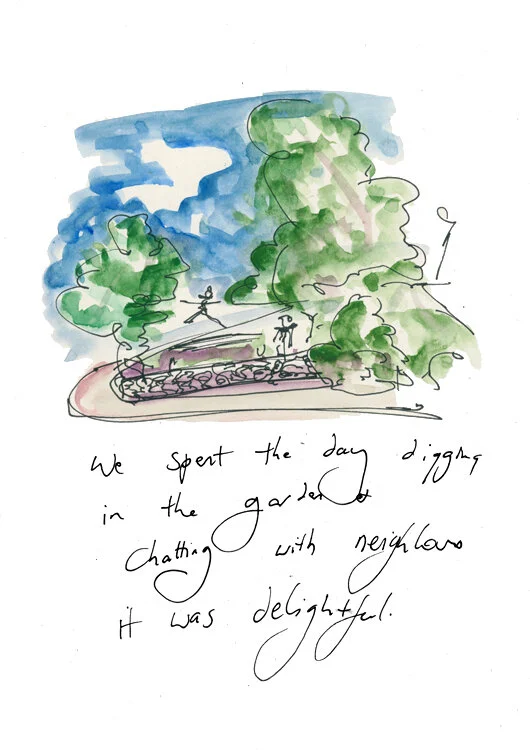 We spent the day digging
in the garden &
chatting with neighbours
it was delightful.